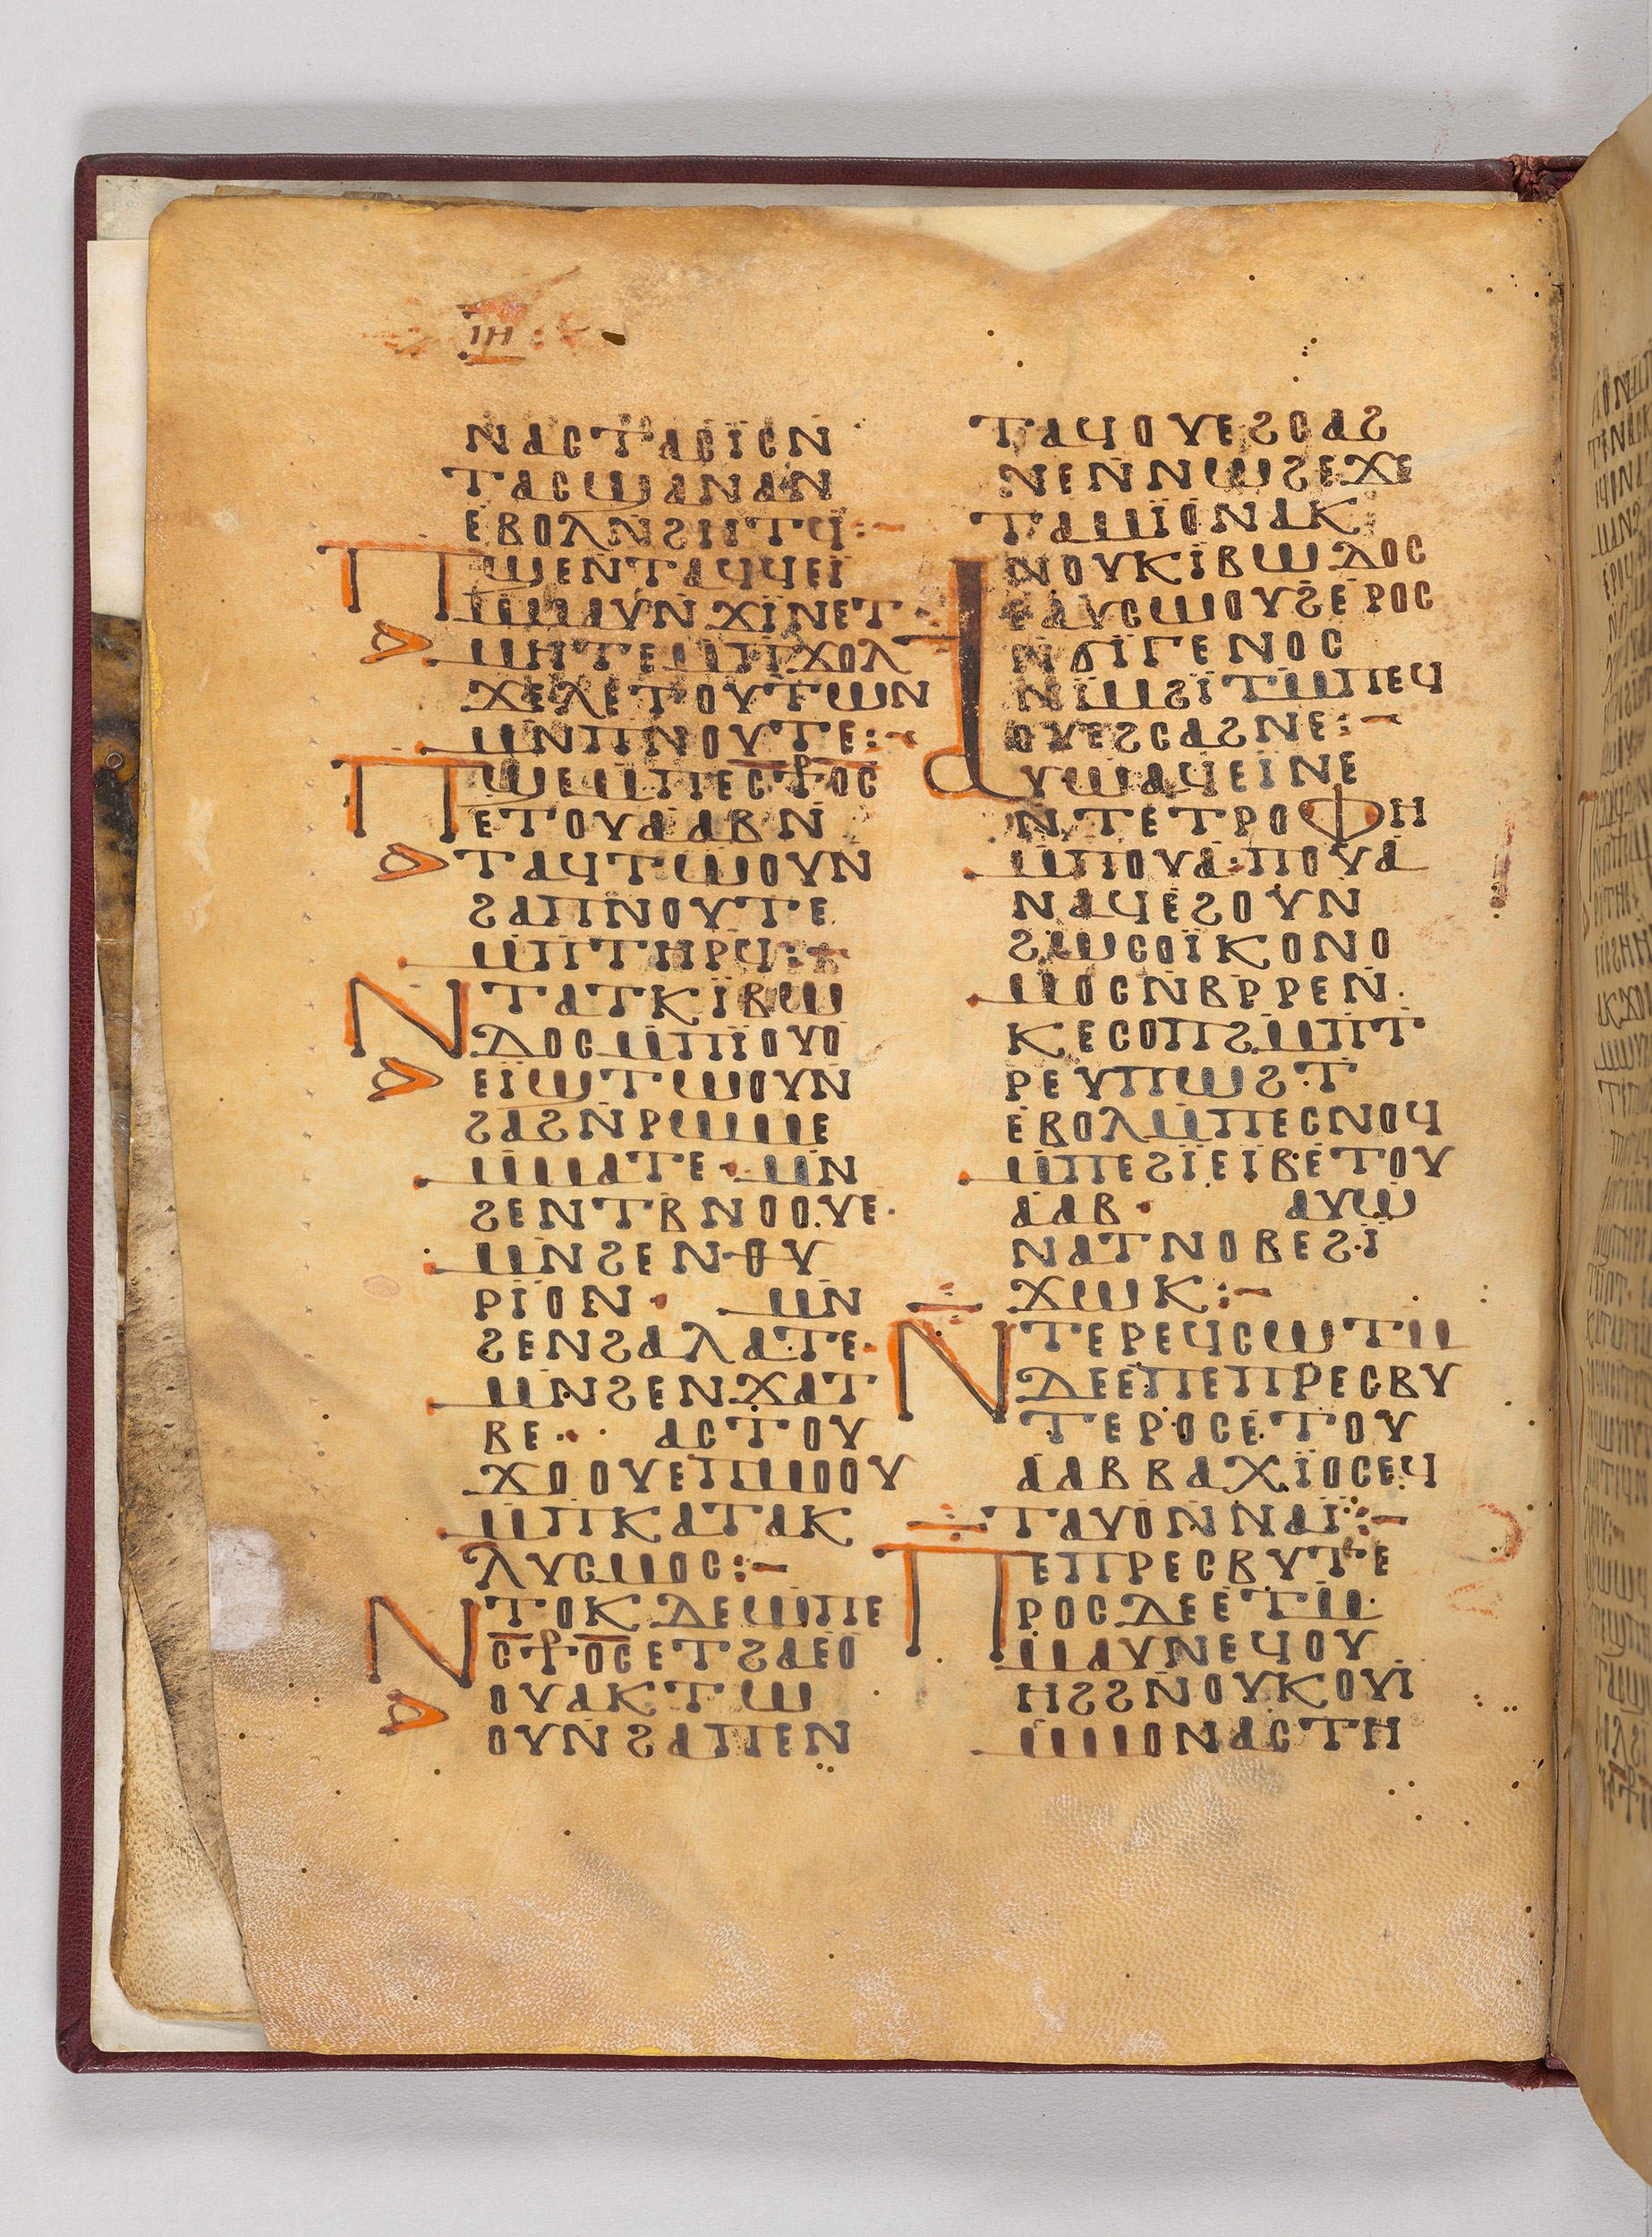 ⲓⲏ
ⲛⲁⲥⲧⲁⲥⲓ̈ⲥⲛ̇
ⲧⲁⲥϣⲁⲛⲁⲛ
ⲉⲃⲟⲗⲛ̇ϩⲏⲧϥ̇:–
Ⲡϣⲉⲛ̇ⲧⲁϥϥⲉⲓ̈
ⲙ̇ⲙⲁⲩⲛ̇ϫⲓ̈ⲛⲉⲧ
ⲙⲏⲧⲉⲙ̇ⲡϫⲟⲗ
ϫⲉⲗⲉⲧⲟⲩⲧⲱⲛ
ⲙⲛ̇ⲡⲛⲟⲩⲧⲉ:–
Ⲡϣⲉⲙ̇ⲡⲉⲥⳁⲟⲥ
ⲉⲧⲟⲩⲁⲁⲃⲛ̇
ⲧⲁϥⲧⲱⲟⲩⲛ
ϩⲁⲡⲛⲟⲩⲧⲉ
ⲙ̇ⲡⲧⲏⲣϥ̇:–
Ⲛⲧⲁⲧⲕⲓ̈ⲃⲱ
ⲇⲟⲥⲙ̇ⲡⲓ̈ⲟⲩⲟ
ⲉⲓ̈ϣⲧⲱⲟⲩⲛ
ϩⲁϩⲛ̇ⲣⲱⲙⲉ
ⲙ̇ⲙⲁⲧⲉ· ⲙⲛ̇
ϩⲉⲛⲧⲃⲛⲟⲟⲩⲉ·
ⲙⲛ̇ϩⲉⲛⲑⲩ
ⲣⲓ̈ⲟⲛ· ⲙⲛ̇
ϩⲉⲛϩⲁⲗⲁⲧⲉ·
ⲙⲛ̇ϩⲉⲛϫⲁⲧ
ⲃⲉ· ⲁⲥⲧⲟⲩ
ϫⲟⲟⲩⲉⲡⲙⲟⲟⲩ
ⲙ̇ⲡⲕⲁⲧⲁⲕ
ⲗⲩⲥⲙⲟⲥ:–
Ⲛⲧⲟⲕⲇⲉⲱ̇ⲡⲉ
ⲥⳁⲟⲥⲉⲧϩⲁⲉⲟ
ⲟⲩⲁⲕⲧⲱ
ⲟⲩⲛ̇ϩⲁⲡⲉⲛ
ⲧⲁϥⲟⲩⲉϩⲥⲁϩ
ⲛⲉⲛ̇ⲛⲱϩⲉϫⲉ
ⲧⲁⲙⲓ̈ⲟⲛⲁⲕ
ⲛ̇ⲟⲩⲕⲓ̈ⲃⲱⲇⲟⲥ
ⲁⲩⲥⲱⲟⲩϩⲉⲣⲟⲥ
ⲛ̇ϭⲓ̈ⲅⲉⲛⲟⲥ
ⲛⲓ̈ⲙϩⲓ̈ⲧⲙ̇ⲡⲉϥ
ⲟⲩⲉϩⲥⲁϩⲛⲉ:–
Ⲁⲩϣⲁϥⲉⲓ̈ⲛⲉ
ⲛ̇ⲧⲉⲧⲣⲟⲫⲏ
ⲙ̇ⲡⲟⲩⲁ·ⲡⲟⲩⲁ
ⲛⲁϥⲉϩⲟⲩⲛ
ϩⲱⲥⲟⲓ̈ⲕⲟⲛⲟ
ⲙⲟⲥⲛ̇ⲃⲣⲣⲉⲛ̇
ⲕⲉⲥⲟⲡϩⲙ̇ⲡⲧ
ⲣⲉⲩⲡⲱϩⲧ
ⲉⲃⲟⲗⲙ̇ⲡⲉⲥⲛⲟϥ
ⲙ̇ⲡⲉϩⲓ̈ⲉⲓⲃⲉⲧⲟⲩ
ⲁⲁⲃ· ⲁⲩⲱ
ⲛⲁⲧⲛⲟⲃⲉϩⲓ̈
ϫⲱⲕ:–
Ⲛⲧⲉⲣⲉϥⲥⲱⲧⲙ
ⲇⲉⲉⲡⲉⲡⲣⲉⲥⲃⲩ
ⲧⲉⲣⲟⲥⲉⲧⲟⲩ
ⲁⲁⲃⲃⲁⲭⲓ̈ⲟⲥⲉϥ
ⲧⲁⲩⲟⲛ̇ⲛⲁⲓ̈:–
Ⲡⲉⲡⲣⲉⲥⲃⲩⲧⲉ
ⲣⲟⲥⲇⲉⲉⲧⲙ̇
ⲙⲁⲩⲛⲉϥⲟⲩ
ⲏϩϩⲛ̇ⲟⲩⲕⲟⲩⲓ
ⲙ̇ⲙⲟⲛⲁⲥⲧⲏ